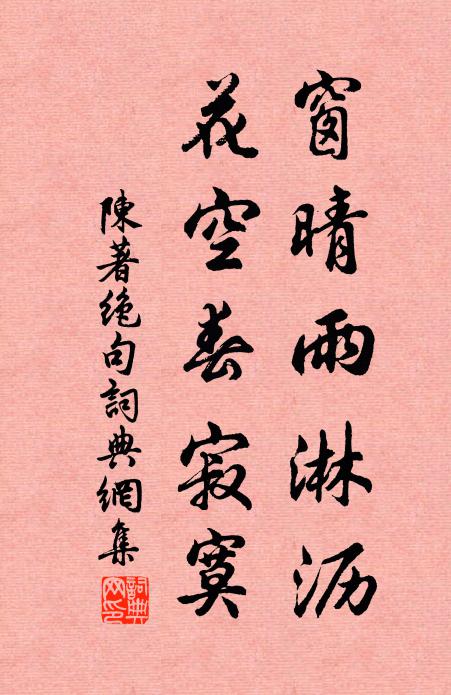 窗晴雨淋沥
花空春寂寞
陳著绝句詞典網集
詞典網印